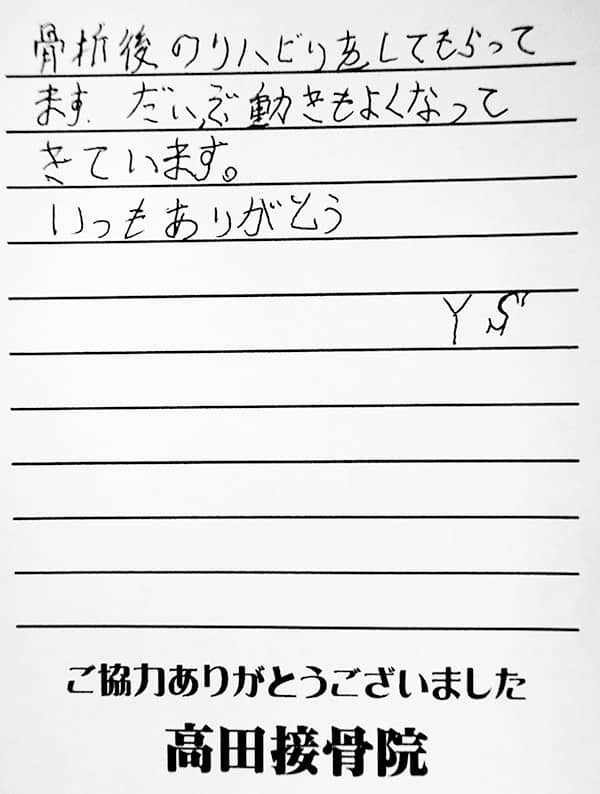 骨折後のリハビリをしてもらって
ます. だいぶ動きもよくなって
きています。
いつもありがとう
Y S
ご協力ありがとうございました
高田接骨院